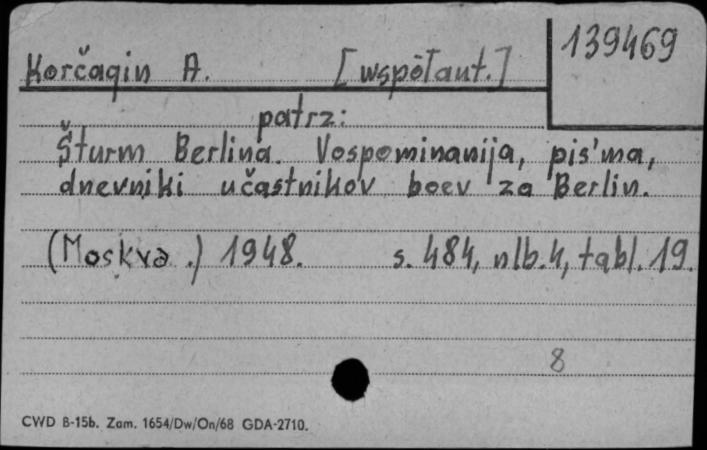 139469
Korčagin A. [współaut.]
patrz:
Šturm Berlina. Vospominanija, pis'ma,
dnevniki učastnikov boev za Berlin.
(Moskva.) 1948. s. 484, nlb. 4, tabl. 19.
8
CWD B-15b. Zam. 1654/Dw/On/68 GDA-2710.